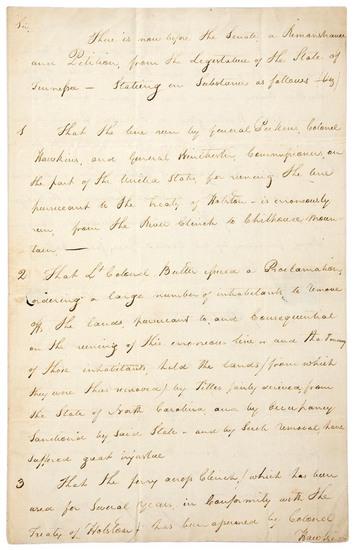 Sir,
There is now before the Senate, a Remonstrance
and Petition, from the Legislature of the State of
Tennessee — Stating in Substance as follows — (viz)
1 That the line run by General Pickens, Colonel
Hawkins, and General Winchester, Commissioners, on
the part of the United States, for running the line
pursuant to the Treaty of Holston — is erroneously
run, from the River Clinch to Chilhowee Moun-
tain —
2 That Lt Colonel Butler issued a Proclamation,
ordering a large number of inhabitants to remove
off the lands, pursuant to, and consequential
on the running of this erroneous line — and that many
of those inhabitants, held the lands (from which
they were thus removed) by Titles fairly derived from
the State of North Carolina, and by Occupancy
Sanctioned by said State — and by such removal have
suffered great injustice
3 That the ferry across Clinch (which has been
used for Several Years, in Conformity with the
Treaty of Holston) has been by Colonel
Hawkins